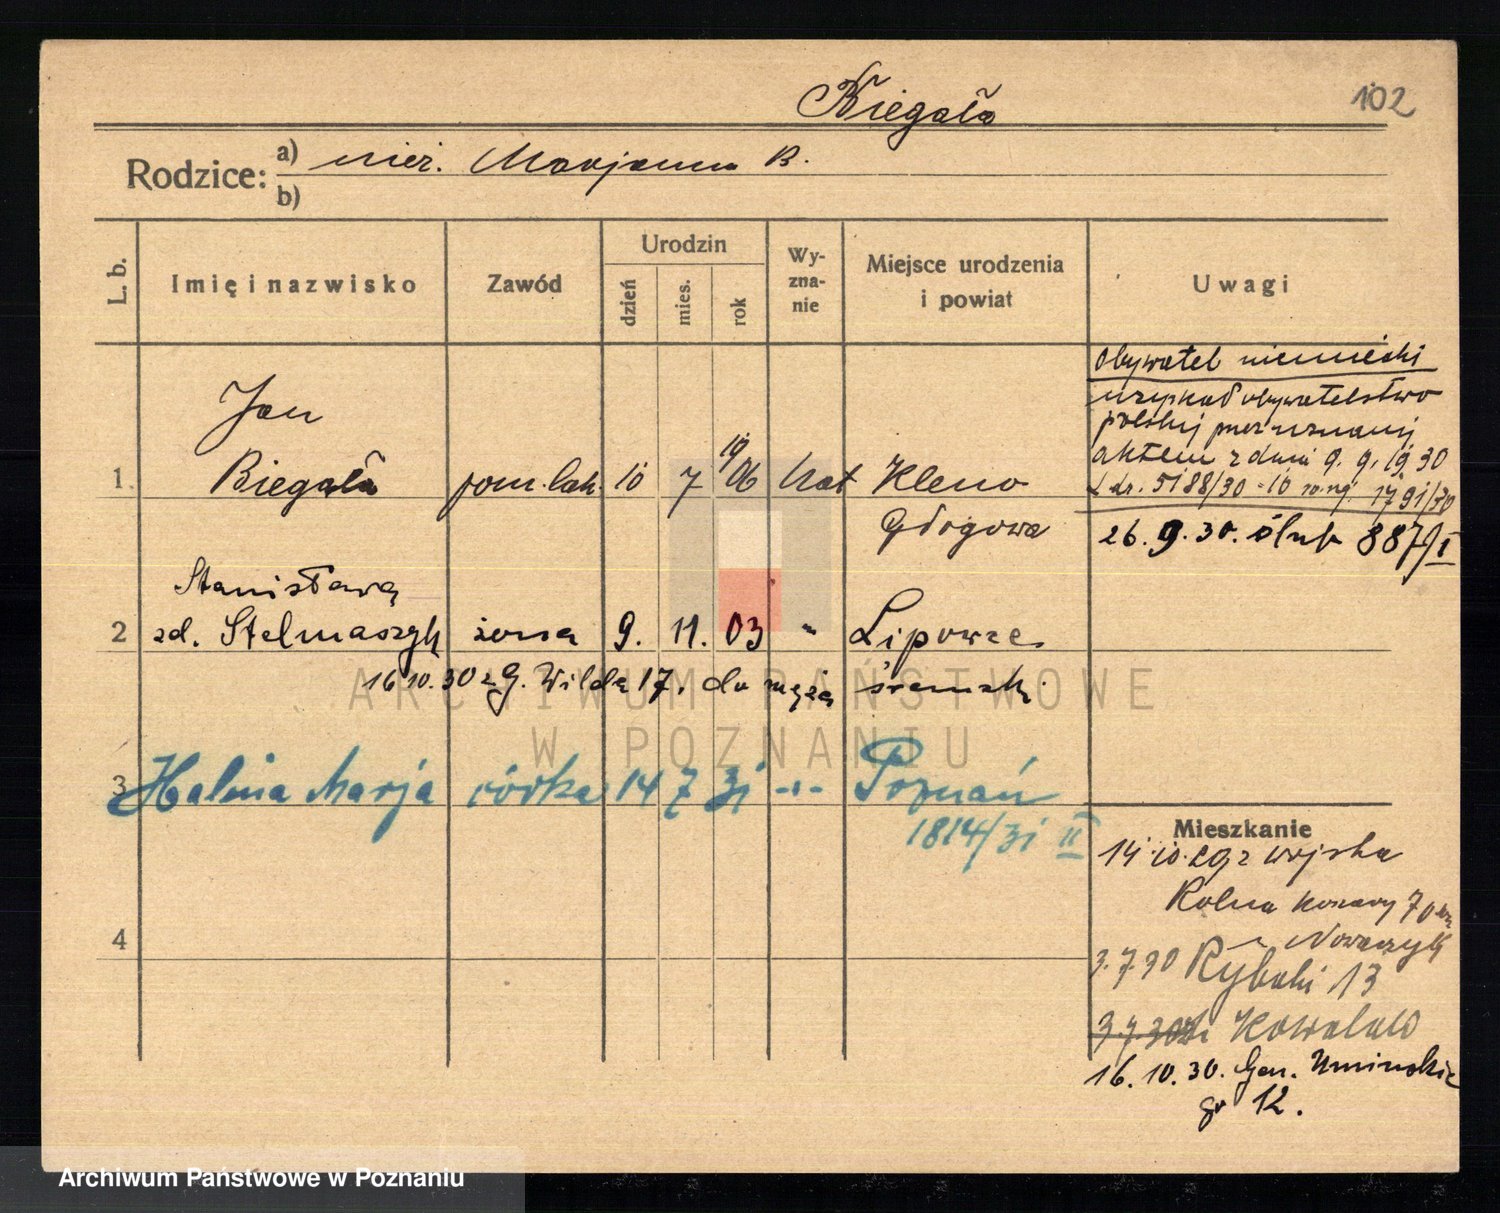 Biegała
102
Rodzice: a) nież. Marjanna B.
b)
L. b.
Imię i nazwisko
Zawód
Urodzin
dzień
mies.
rok
Wy-
zna-
nie
Miejsce urodzenia
i powiat
Uwagi
1.
Jan
Biegała
pom. lak.
10
7
1906
kat
Kleno
Głogowa
obywatel niemiecki
uzyskał obywatelstwo
polskiej
aktem z dnia 9. 9. 1930
L. dz. 5188/30 1791/30
26. 9. 30. ślub 887/I
2
Stanisława
zd. Stelmaszyk
żona
9.
11.
03
"
Lipowze
śremski
16 10. 30 z G. Wilda 17. do męża
3
Halina Marja
córka
14
7
31
-"-
Poznań
1814/31 II
4
Mieszkanie
14.10.29 z wojska
Rolna koszary 70
Nowaczyk
3.7.30 Rybaki 13
3.7.30 Kowalski
16. 10. 30. Gen. Umińskie
go 12.
ARCHIWUM PAŃSTWOWE
W POZNANIU
Archiwum Państwowe w Poznaniu